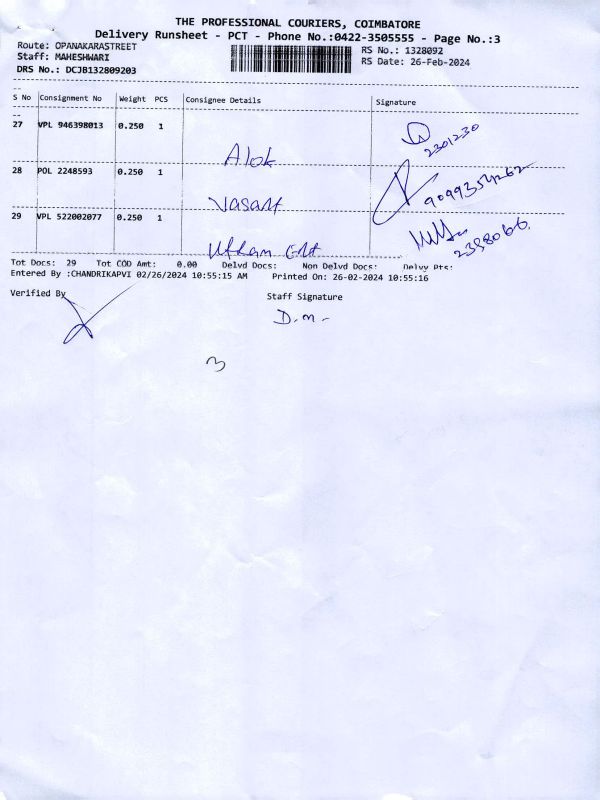 THE PROFESSIONAL COURIERS, COIMBATORE
Delivery Runsheet - PCT - Phone No.:0422-3505555 - Page No.:3
Route: OPANAKARASTREET
RS No.: 1328092
Staff: MAHESHWARI
RS Date: 26-Feb-2024
DRS No.: DCJB132809203
S No Consignment No Weight PCS Consignee Details Signature
27 VPL 946398013 0.250 1
2301230
Alok
28 POL 2248593 0.250 1
Vasant
29 VPL 522002077 0.250 1
Uttam Ent
Tot Docs: 29 Tot COD Amt: 0.00 Delvd Docs: Non Delvd Docs: Delvy Pts:
Entered By :CHANDRIKAPVI 02/26/2024 10:55:15 AM Printed On: 26-02-2024 10:55:16
Verified By
Staff Signature
D.m-
3